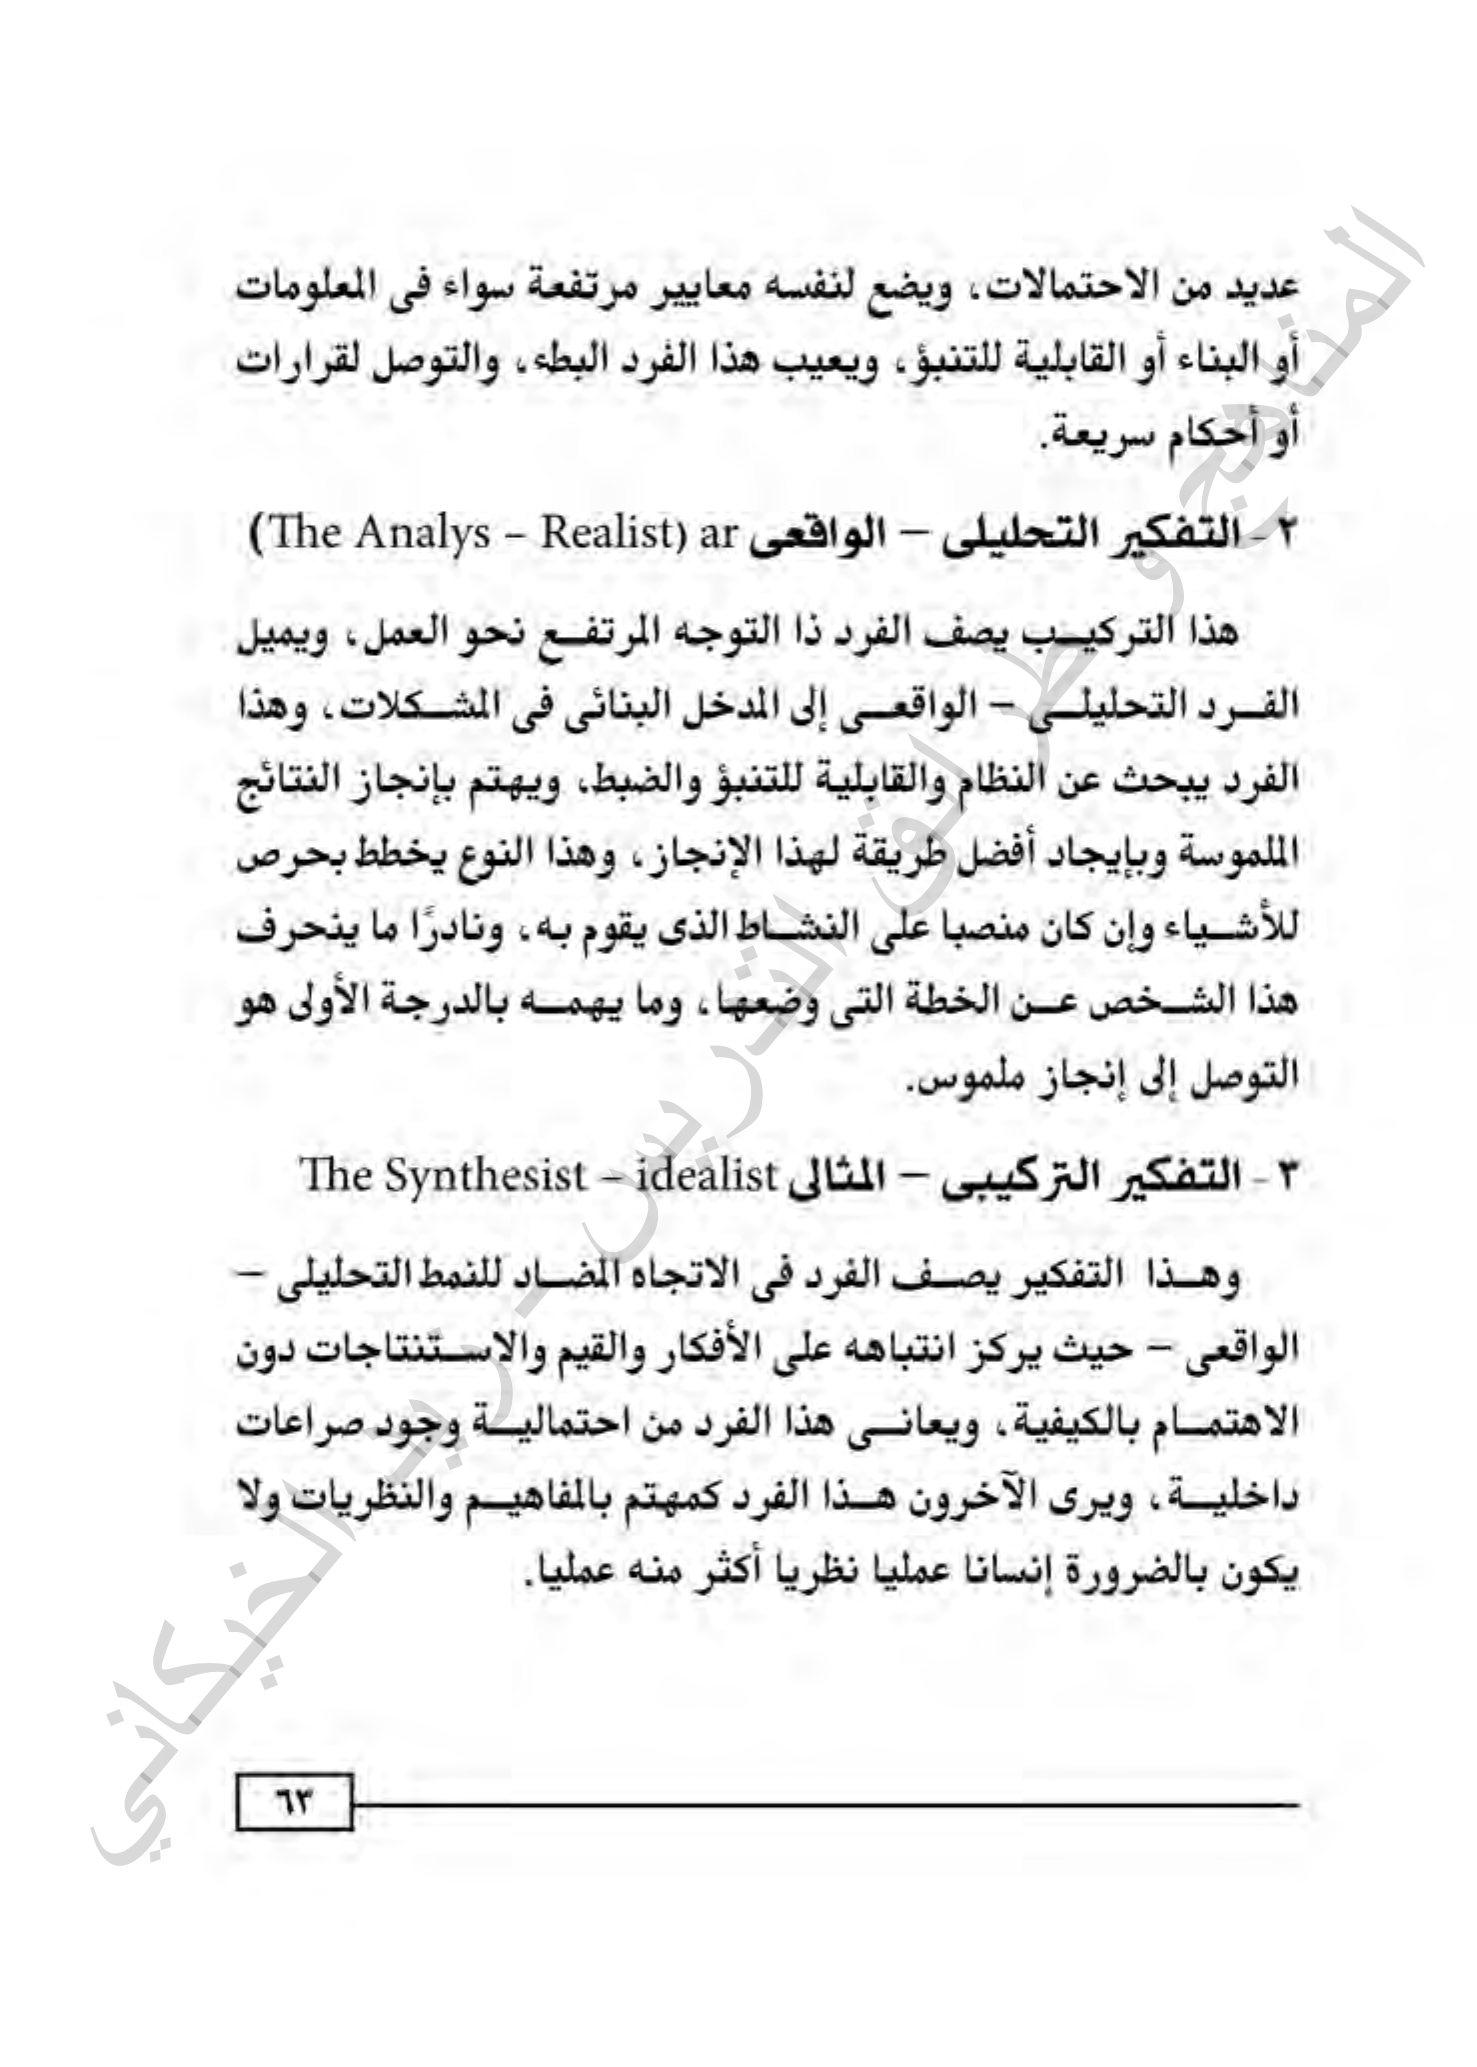 عديد من الاحتمالات، ويضع لنفسه معايير مرتفعة سواء فى المعلومات
أو البناء أو القابلية للتنبؤ، ويعيب هذا الفرد البطء، والتوصل لقرارات
أو أحكام سريعة.
٢ - التفكير التحليلى – الواقعى The Analys – Realist) ar)
هذا التركيب يصف الفرد ذا التوجه المرتفع نحو العمل، ويميل
الفرد التحليلى – الواقعى إلى المدخل البنائى فى المشكلات، وهذا
الفرد يبحث عن النظام والقابلية للتنبؤ والضبط، ويهتم بإنجاز النتائج
الملموسة وبإيجاد أفضل طريقة لهذا الإنجاز، وهذا النوع يخطط بحرص
للأشياء وإن كان منصبا على النشاط الذى يقوم به، ونادرًا ما ينحرف
هذا الشخص عن الخطة التى وضعها، وما يهمه بالدرجة الأولى هو
التوصل إلى إنجاز ملموس.
٣ - التفكير التركيبى – المثالى The Synthesist – idealist
وهذا التفكير يصف الفرد فى الاتجاه المضاد للنمط التحليلى –
الواقعى – حيث يركز انتباهه على الأفكار والقيم والاستنتاجات دون
الاهتمام بالكيفية، ويعانى هذا الفرد من احتمالية وجود صراعات
داخلية، ويرى الآخرون هذا الفرد كمهتم بالمفاهيم والنظريات ولا
يكون بالضرورة إنسانا عمليا نظريا أكثر منه عمليا.
٦٣
المناهج و طرائق التدريس - رند الخيكاني